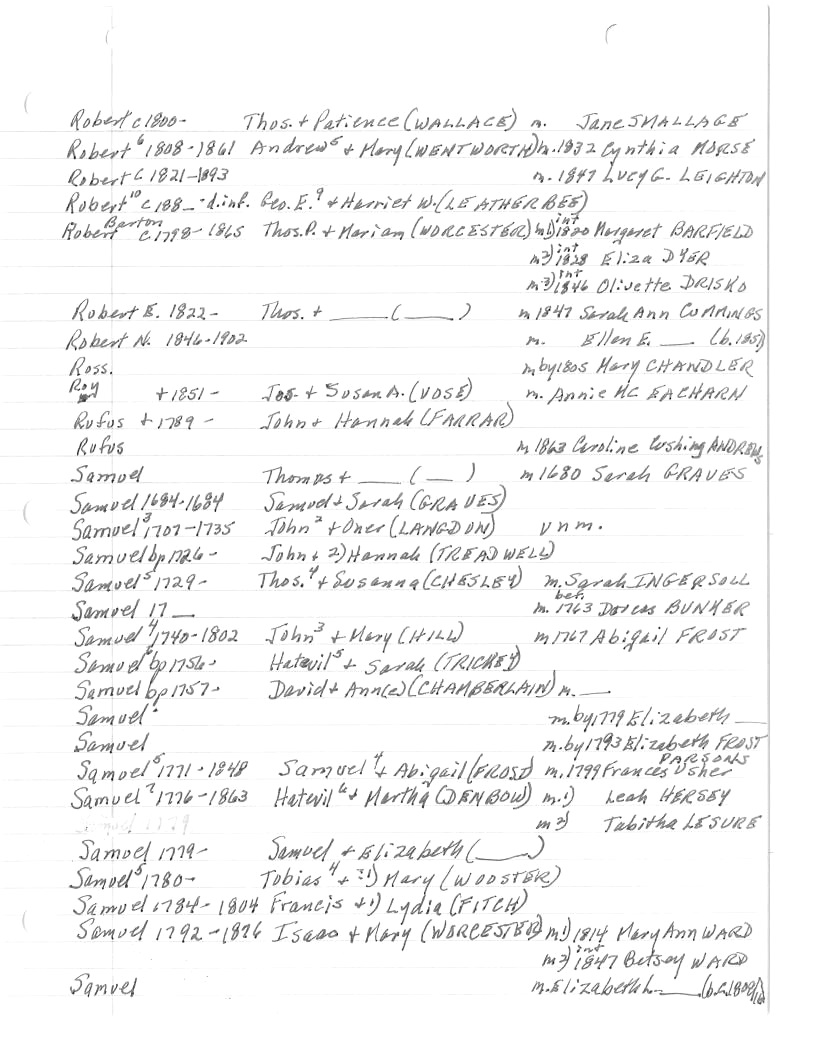 Robert c1800- Thos. + Patience (WALLACE) m. Jane SMALLAGE
Robert⁶ 1808-1861 Andrew⁵ + Mary (WENTWORTH) m.1832 Cynthia MORSE
Robert C 1821-1893 m. 1847 Lucy G. LEIGHTON
Robert¹⁰ c188_ -d.inf. Geo. E.⁹ + Harriet W. (LEATHERBEE)
Robert Barton c.1798- 1865 Thos. P. + Mariam (WORCESTER) m1) int 1820 Margaret BARFIELD
m2) int 1828 Eliza DYER
m3) int 1846 Olivette DRISKO
Robert E. 1822- Thos. + ____ (____) m 1847 Sarah Ann CUMMINGS
Robert N. 1846-1902 m. Ellen E. ___ (b.185)
Ross. m by 1805 Mary CHANDLER
Roy +1851- Jos. + Susan A. (VOSE) m. Annie MC EACHARN
Rufus +1789- John + Hannah (FARRAR)
Rufus m 1863 Caroline Cushing ANDREWS
Samuel Thomas + ____ (___) m 1680 Sarah GRAVES
Samuel 1684-1684 Samuel + Sarah (GRAVES)
Samuel³ 1707-1735 John² + Oner (LANGDON) unm.
Samuel bp 1726- John + 2) Hannah (TREADWELL)
Samuel⁵ 1729- Thos.⁴ + Susanna (CHESLEY) m. Sarah INGERSOLL
Samuel 17__ m. bef. 1763 Dorcas BUNKER
Samuel⁴ 1740-1802 John³ + Mary (HILL) m 1767 Abigail FROST
Samuel⁶ bp 1756- Hatevil⁵ + Sarah (TRICKEY)
Samuel bp 1757- David + Ann(e) (CHAMBERLAIN) m. ___
Samuel m. by 1779 Elizabeth ___
Samuel m. by 1793 Elizabeth FROST
Samuel⁵ 1771-1848 Samuel⁴ + Abigail (FROST) m. 1799 Frances Usher PARSONS
Samuel⁷ 1776-1863 Hatevil⁶ + Martha (DENBOW) m.1) Leah HERSEY
m 2) Tabitha LESURE
Samuel 1779- Samuel + Elizabeth (____)
Samuel⁵ 1780- Tobias⁴ + ?1) Mary (WOOSTER)
Samuel 1784-1804 Francis +1) Lydia (FITCH)
Samuel 1792-1876 Isaac + Mary (WORCESTER) m1) 1814 Mary Ann WARD
m2) int 1847 Betsey WARD
Samuel m. Elizabeth L. ____ (b.c.1809/10)